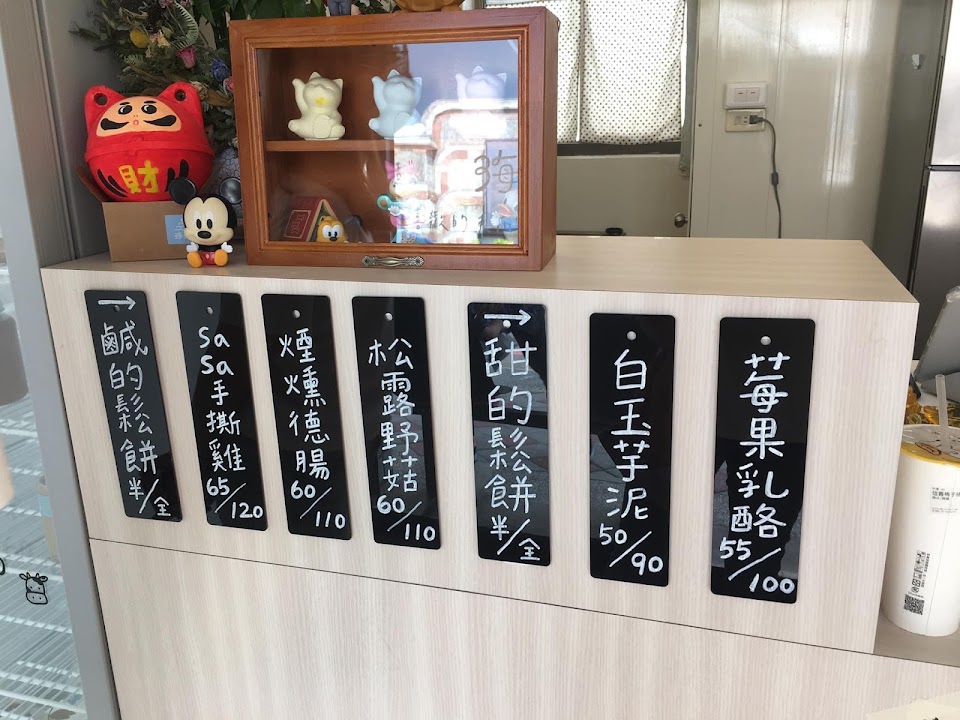 財
→
鹹的鬆餅
半/全
SaSa手撕雞
65/120
煙燻德腸
60/110
松露野菇
60/110
→
甜的鬆餅
半/全
白玉芋泥
50/90
莓果乳酪
55/100